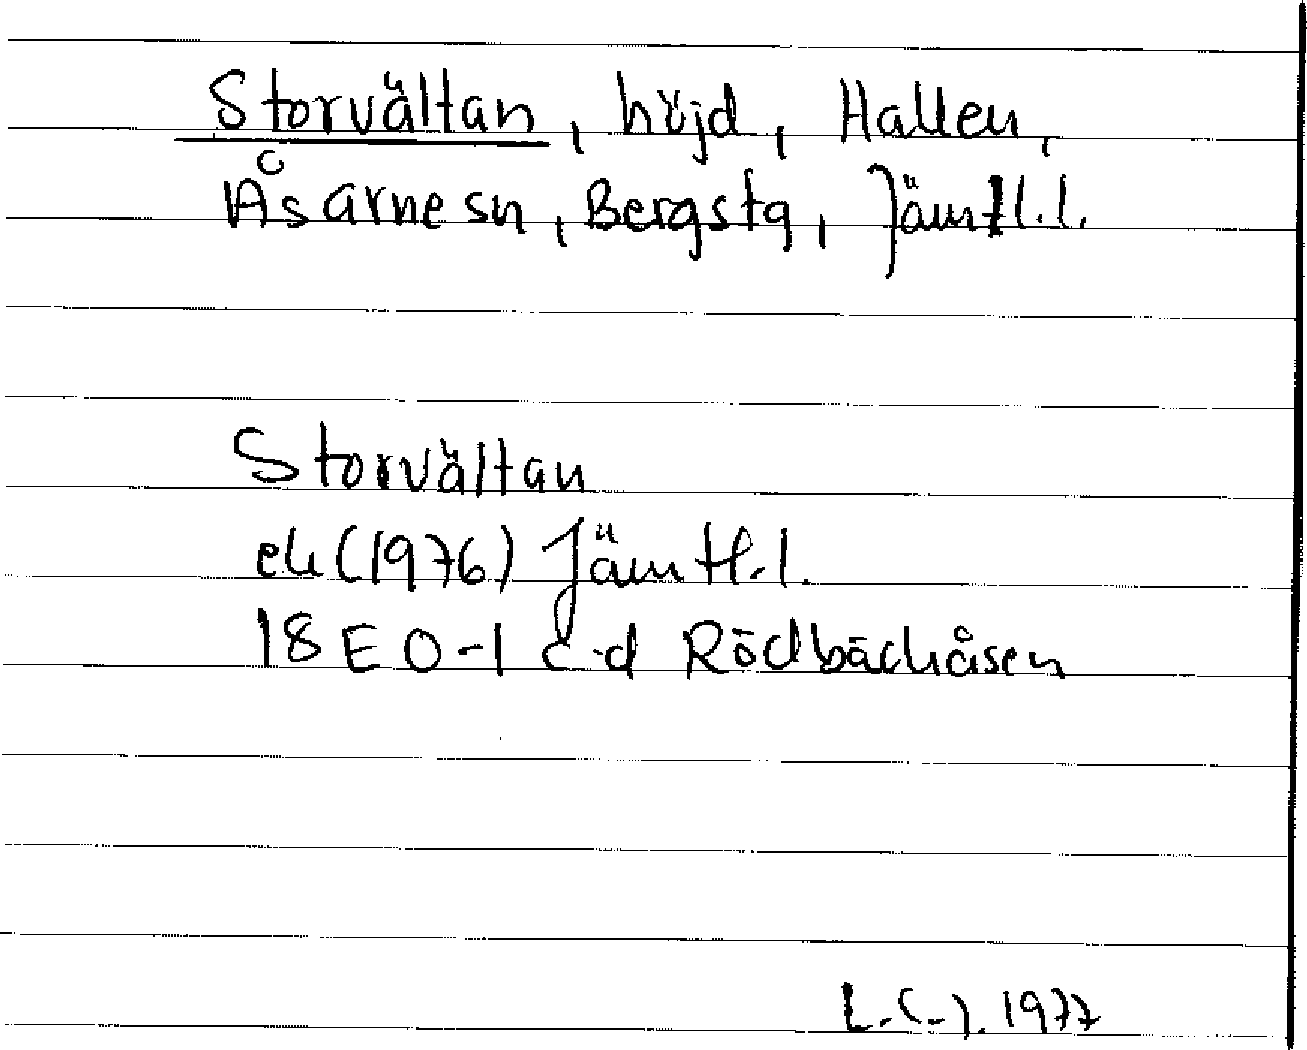 Storvältan, höjd, Hallen,
Åsarne sn, Bergs tg, Jämtl.l.
Storvältan
ek (1976) Jämtl.l.
18 E 0-1 c-d Rödbäckåsen
L.C-). 1977